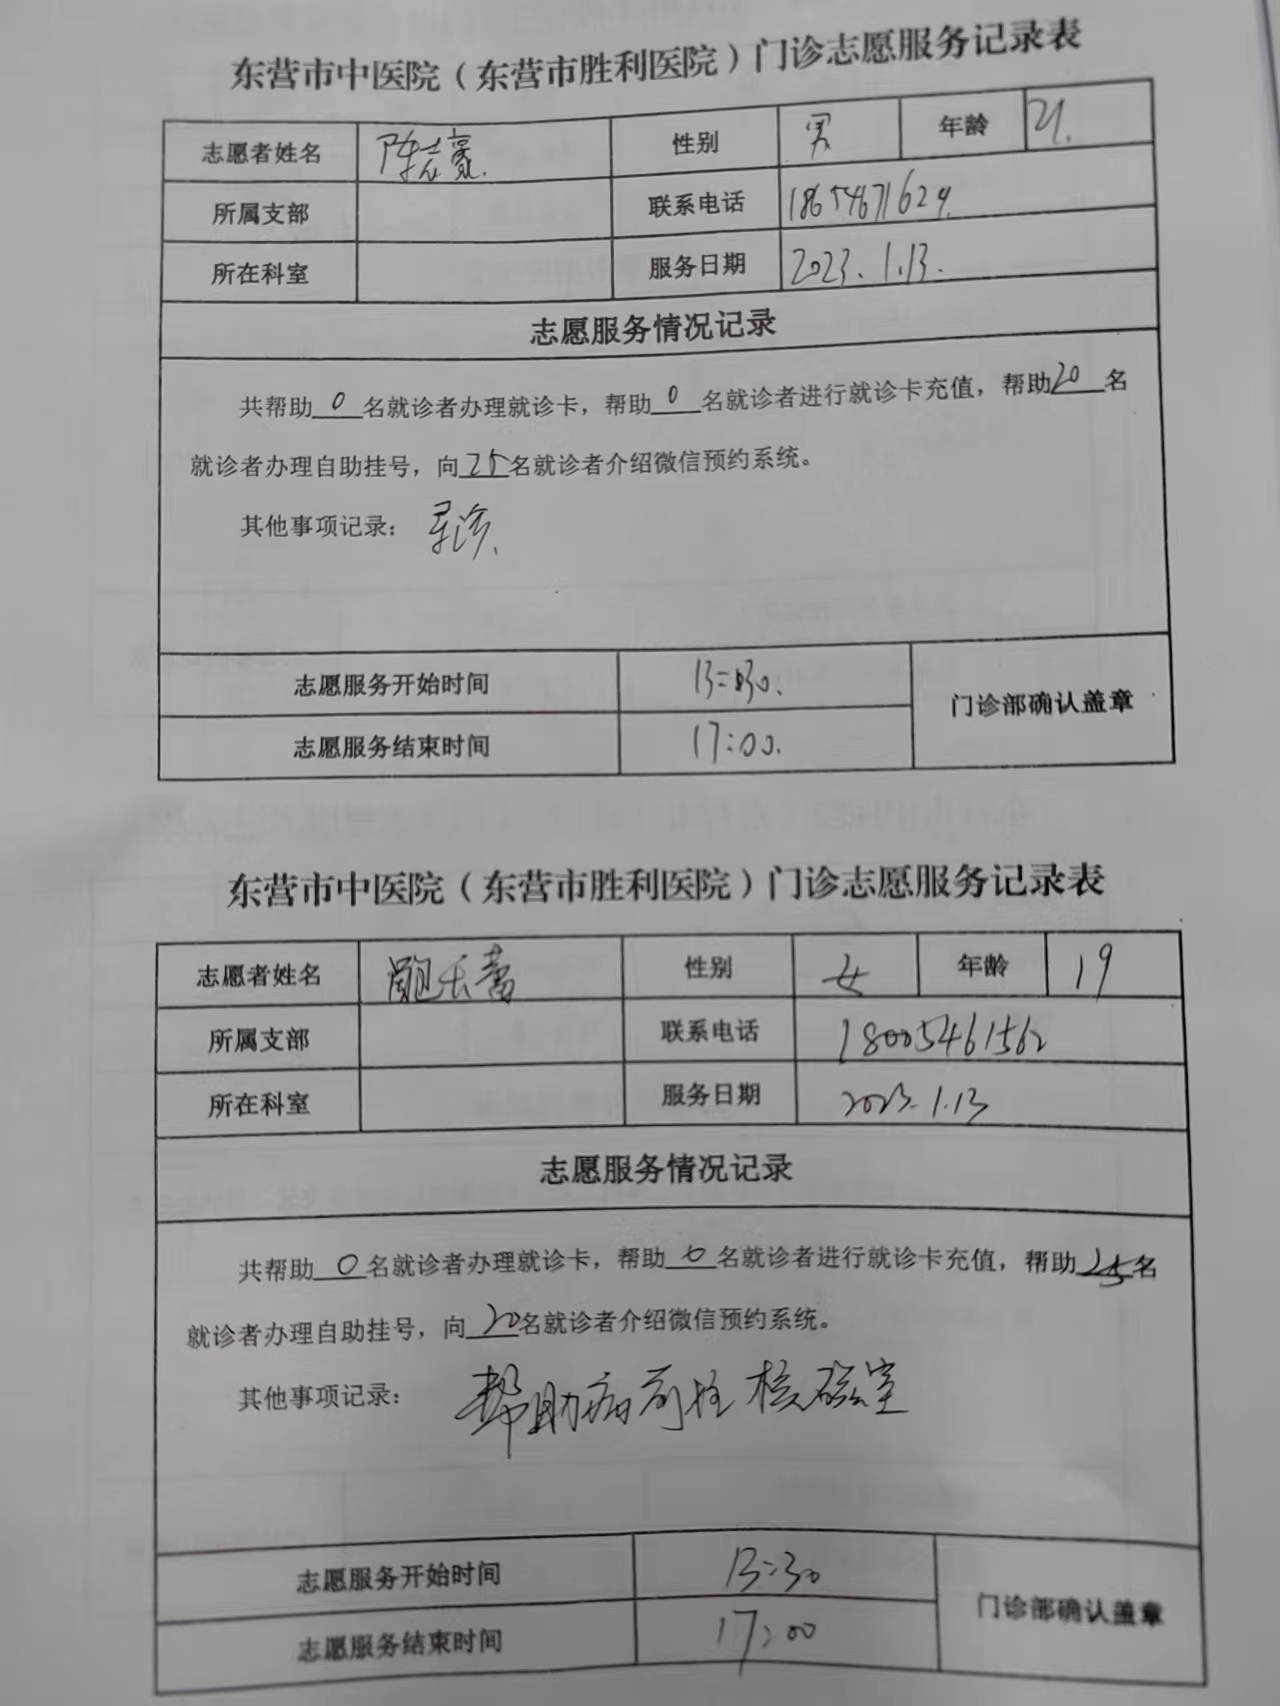 东营市中医院（东营市胜利医院）门诊志愿服务记录表
志愿者姓名 陈志豪. 性别 男 年龄 21.
所属支部 联系电话 18654671629.
所在科室 服务日期 2023.1.13.
志愿服务情况记录
共帮助0名就诊者办理就诊卡，帮助0名就诊者进行就诊卡充值，帮助20名
就诊者办理自助挂号，向25名就诊者介绍微信预约系统。
其他事项记录： 导诊.
志愿服务开始时间 13:30.
门诊部确认盖章
志愿服务结束时间 17:00.
东营市中医院（东营市胜利医院）门诊志愿服务记录表
志愿者姓名 性别 女 年龄 19
所属支部 联系电话 18005461562
所在科室 服务日期 2023.1.13
志愿服务情况记录
共帮助0名就诊者办理就诊卡，帮助0名就诊者进行就诊卡充值，帮助25名
就诊者办理自助挂号，向20名就诊者介绍微信预约系统。
其他事项记录： 帮助病前往核磁室
志愿服务开始时间 13:30
门诊部确认盖章
志愿服务结束时间 17:00